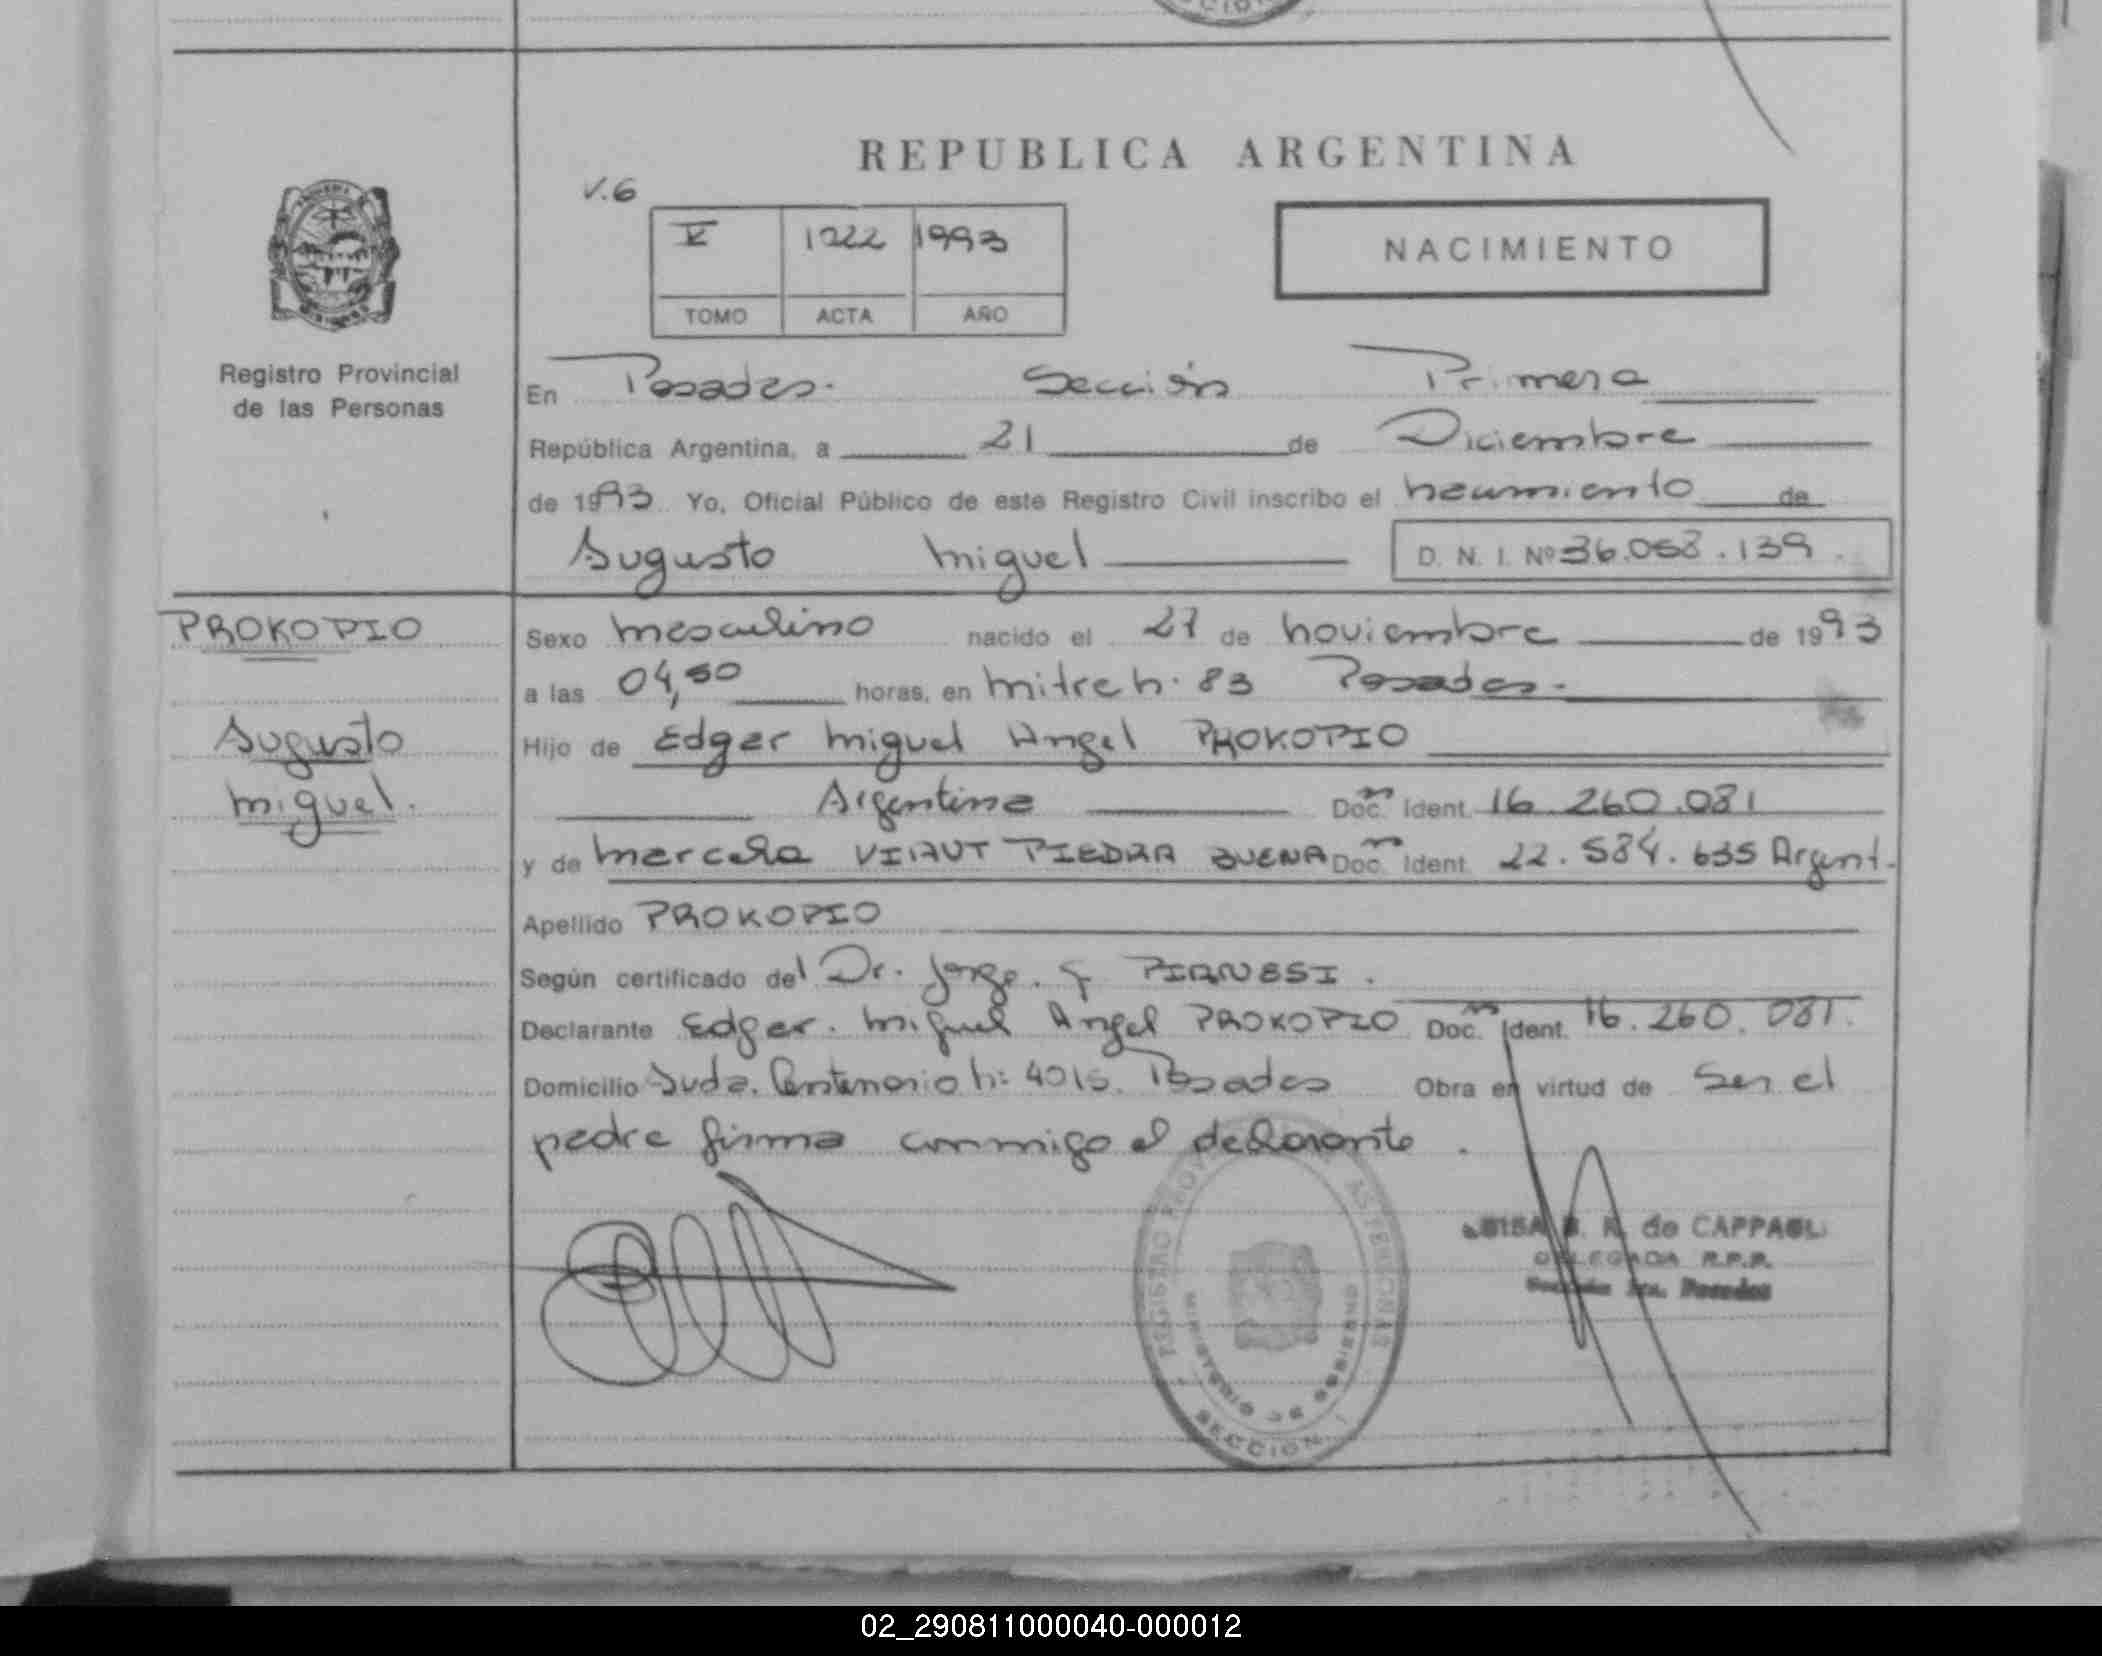 REPUBLICA ARGENTINA
V.6
V 1022 1993
TOMO ACTA AÑO
NACIMIENTO
Registro Provincial
de las Personas
En Posadas. Sección Primera
República Argentina, a 21 de Diciembre
de 1993 Yo, Oficial Público de este Registro Civil inscribo el nacimiento de
Augusto Miguel D. N. I. Nº 36.058.139.
PROKOPIO
Augusto
Miguel.
Sexo masculino nacido el 27 de noviembre de 1993
a las 04,50 horas, en mitre n. 83 Posadas.
Hijo de Edgar Miguel Angel PROKOPIO
Argentina Doc. Ident. 16.260.081
y de Marcela VIAUT PIEDRA BUENA Doc. Ident. 22.584.635 Argent.
Apellido PROKOPIO
Según certificado del Dr. Jorge. PIANESSI.
Declarante Edgar. Miguel Angel PROKOPIO Doc. Ident. 16.260.081.
Domicilio Avda. Centenario n: 4016. Posadas Obra en virtud de ser el
padre firma conmigo el declarante.
REGISTRO PROVINCIAL DE LAS PERSONAS
MINISTERIO DE GOBIERNO
SECCION
de CAPPAGLI
DELEGADA R.P.P.
Sección 1ra. Posadas
02_290811000040-000012